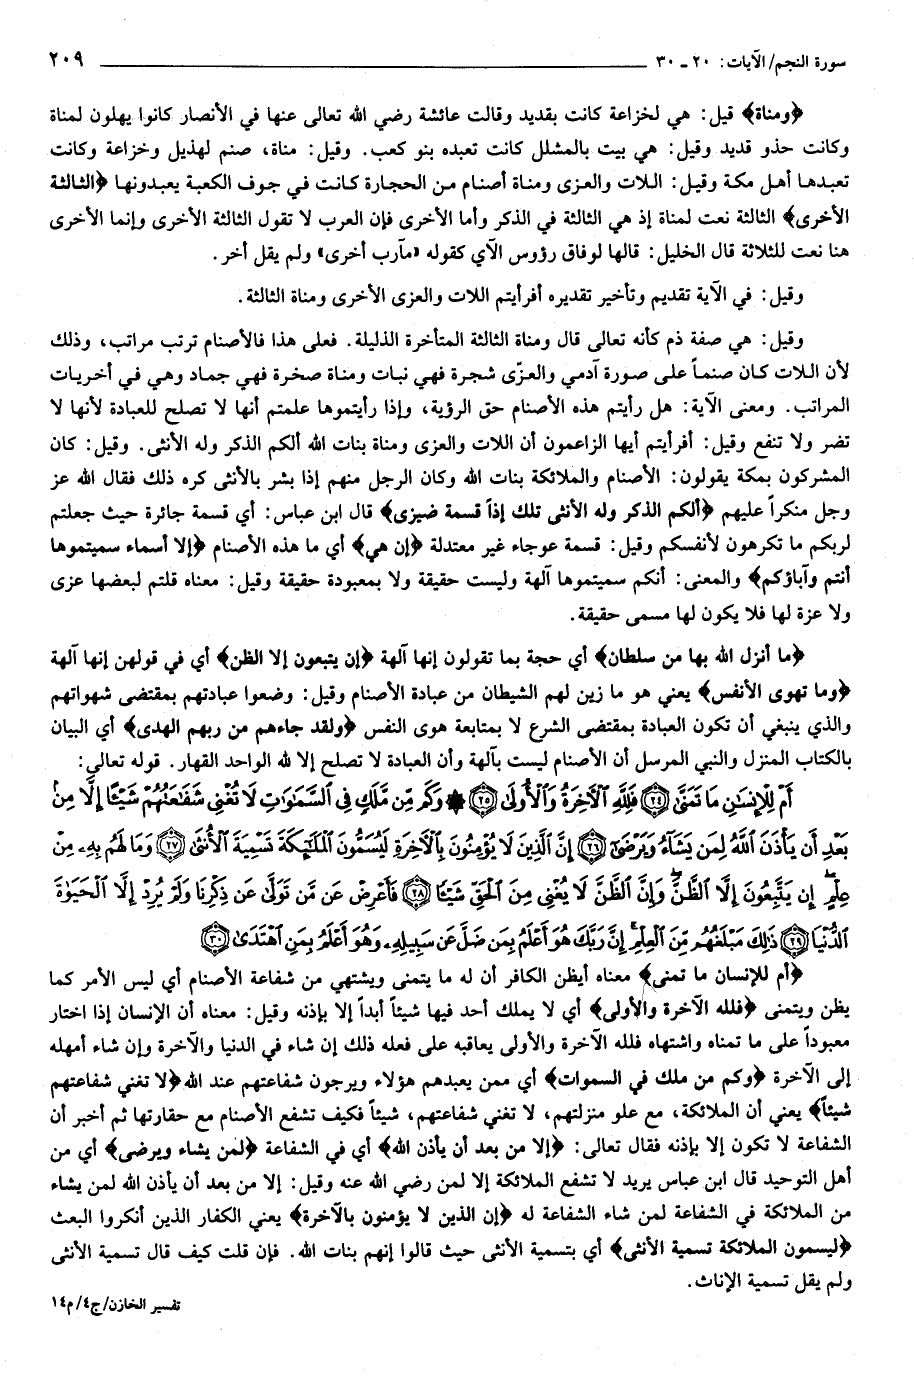 سورة النجم/ الآيات: ٢٠ ـ ٣٠ ٢٠٩
﴿ومناة﴾ قيل: هي لخزاعة كانت بقديد وقالت عائشة رضي الله تعالى عنها في الأنصار كانوا يهلون لمناة
وكانت حذو قديد وقيل: هي بيت بالمشلل كانت تعبده بنو كعب. وقيل: مناة، صنم لهذيل وخزاعة وكانت
تعبدها أهل مكة وقيل: اللات والعزى ومناة أصنام من الحجارة كانت في جوف الكعبة يعبدونها ﴿الثالثة
الأخرى﴾ الثالثة نعت لمناة إذ هي الثالثة في الذكر وأما الأخرى فإن العرب لا تقول الثالثة الأخرى وإنما الأخرى
هنا نعت للثلاثة قال الخليل: قالها لوفاق رؤوس الآي كقوله «مآرب أخرى» ولم يقل أخر.
وقيل: في الآية تقديم وتأخير تقديره أفرأيتم اللات والعزى الأخرى ومناة الثالثة.
وقيل: هي صفة ذم كأنه تعالى قال ومناة الثالثة المتأخرة الذليلة. فعلى هذا فالأصنام ترتب مراتب، وذلك
لأن اللات كان صنماً على صورة آدمي والعزّى شجرة فهي نبات ومناة صخرة فهي جماد وهي في أخريات
المراتب. ومعنى الآية: هل رأيتم هذه الأصنام حق الرؤية، وإذا رأيتموها علمتم أنها لا تصلح للعبادة لأنها لا
تضر ولا تنفع وقيل: أفرأيتم أيها الزاعمون أن اللات والعزى ومناة بنات الله ألكم الذكر وله الأنثى. وقيل: كان
المشركون بمكة يقولون: الأصنام والملائكة بنات الله وكان الرجل منهم إذا بشر بالأنثى كره ذلك فقال الله عز
وجل منكراً عليهم ﴿ألكم الذكر وله الأنثى تلك إذاً قسمة ضيزى﴾ قال ابن عباس: أي قسمة جائرة حيث جعلتم
لربكم ما تكرهون لأنفسكم وقيل: قسمة عوجاء غير معتدلة ﴿إن هي﴾ أي ما هذه الأصنام ﴿إلا أسماء سميتموها
أنتم وآباؤكم﴾ والمعنى: أنكم سميتموها آلهة وليست حقيقة ولا بمعبودة حقيقة وقيل: معناه قلتم لبعضها عزى
ولا عزة لها فلا يكون لها مسمى حقيقة.
﴿ما أنزل الله بها من سلطان﴾ أي حجة بما تقولون إنها آلهة ﴿إن يتبعون إلا الظن﴾ أي في قولهن إنها آلهة
﴿وما تهوى الأنفس﴾ يعني هو ما زين لهم الشيطان من عبادة الأصنام وقيل: وضعوا عبادتهم بمقتضى شهواتهم
والذي ينبغي أن تكون العبادة بمقتضى الشرع لا بمتابعة هوى النفس ﴿ولقد جاءهم من ربهم الهدى﴾ أي البيان
بالكتاب المنزل والنبي المرسل أن الأصنام ليست بآلهة وأن العبادة لا تصلح إلا لله الواحد القهار. قوله تعالى:
أَمْ لِلْإِنسَٰنِ مَا تَمَنَّىٰ ﴿٢٤﴾ فَلِلَّهِ ٱلْآخِرَةُ وَٱلْأُولَىٰ ﴿٢٥﴾ ۞ وَكَم مِّن مَّلَكٍ فِى ٱلسَّمَٰوَٰتِ لَا تُغْنِى شَفَٰعَتُهُمْ شَيْـًٔا إِلَّا مِنۢ
بَعْدِ أَن يَأْذَنَ ٱللَّهُ لِمَن يَشَآءُ وَيَرْضَىٰٓ ﴿٢٦﴾ إِنَّ ٱلَّذِينَ لَا يُؤْمِنُونَ بِٱلْآخِرَةِ لَيُسَمُّونَ ٱلْمَلَٰٓئِكَةَ تَسْمِيَةَ ٱلْأُنثَىٰ ﴿٢٧﴾ وَمَا لَهُم بِهِۦ مِنْ
عِلْمٍ ۖ إِن يَتَّبِعُونَ إِلَّا ٱلظَّنَّ ۖ وَإِنَّ ٱلظَّنَّ لَا يُغْنِى مِنَ ٱلْحَقِّ شَيْـًٔا ﴿٢٨﴾ فَأَعْرِضْ عَن مَّن تَوَلَّىٰ عَن ذِكْرِنَا وَلَمْ يُرِدْ إِلَّا ٱلْحَيَوٰةَ
ٱلدُّنْيَا ﴿٢٩﴾ ذَٰلِكَ مَبْلَغُهُم مِّنَ ٱلْعِلْمِ ۚ إِنَّ رَبَّكَ هُوَ أَعْلَمُ بِمَن ضَلَّ عَن سَبِيلِهِۦ وَهُوَ أَعْلَمُ بِمَنِ ٱهْتَدَىٰ ﴿٣٠﴾
﴿أم للإنسان ما تمنى﴾ معناه أيظن الكافر أن له ما يتمنى ويشتهي من شفاعة الأصنام أي ليس الأمر كما
يظن ويتمنى ﴿فلله الآخرة والأولى﴾ أي لا يملك أحد فيها شيئاً أبداً إلا بإذنه وقيل: معناه أن الإنسان إذا اختار
معبوداً على ما تمناه واشتهاه فلله الآخرة والأولى يعاقبه على فعله ذلك إن شاء في الدنيا والآخرة وإن شاء أمهله
إلى الآخرة ﴿وكم من ملك في السموات﴾ أي ممن يعبدهم هؤلاء ويرجون شفاعتهم عند الله ﴿لا تغني شفاعتهم
شيئاً﴾ يعني أن الملائكة، مع علو منزلتهم، لا تغني شفاعتهم، شيئاً فكيف تشفع الأصنام مع حقارتها ثم أخبر أن
الشفاعة لا تكون إلا بإذنه فقال تعالى: ﴿إلا من بعد أن يأذن الله﴾ أي في الشفاعة ﴿لمن يشاء ويرضى﴾ أي من
أهل التوحيد قال ابن عباس يريد لا تشفع الملائكة إلا لمن رضي الله عنه وقيل: إلا من بعد أن يأذن الله لمن يشاء
من الملائكة في الشفاعة لمن شاء الشفاعة له ﴿إن الذين لا يؤمنون بالآخرة﴾ يعني الكفار الذين أنكروا البعث
﴿ليسمون الملائكة تسمية الأنثى﴾ أي بتسمية الأنثى حيث قالوا إنهم بنات الله. فإن قلت كيف قال تسمية الأنثى
ولم يقل تسمية الإناث.
تفسير الخازن/ج٤/م١٤